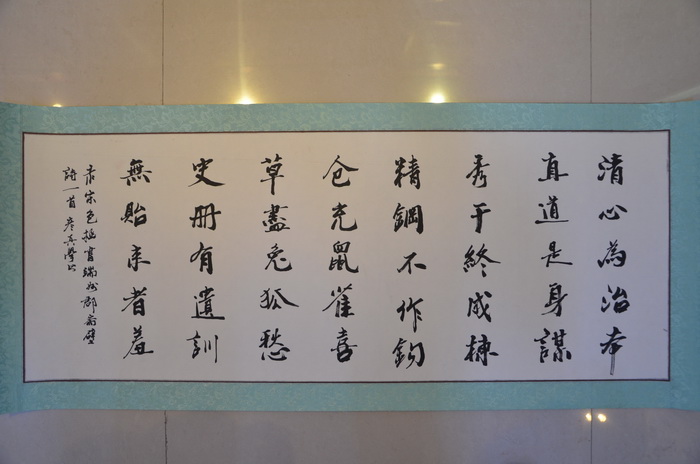 清心為治本
直道是身謀
秀干終成棟
精鋼不作鈎
仓充鼠雀喜
草盡兔狐愁
史册有遺訓
無貽来者羞
宋包拯書端州郡齋壁
詩一首